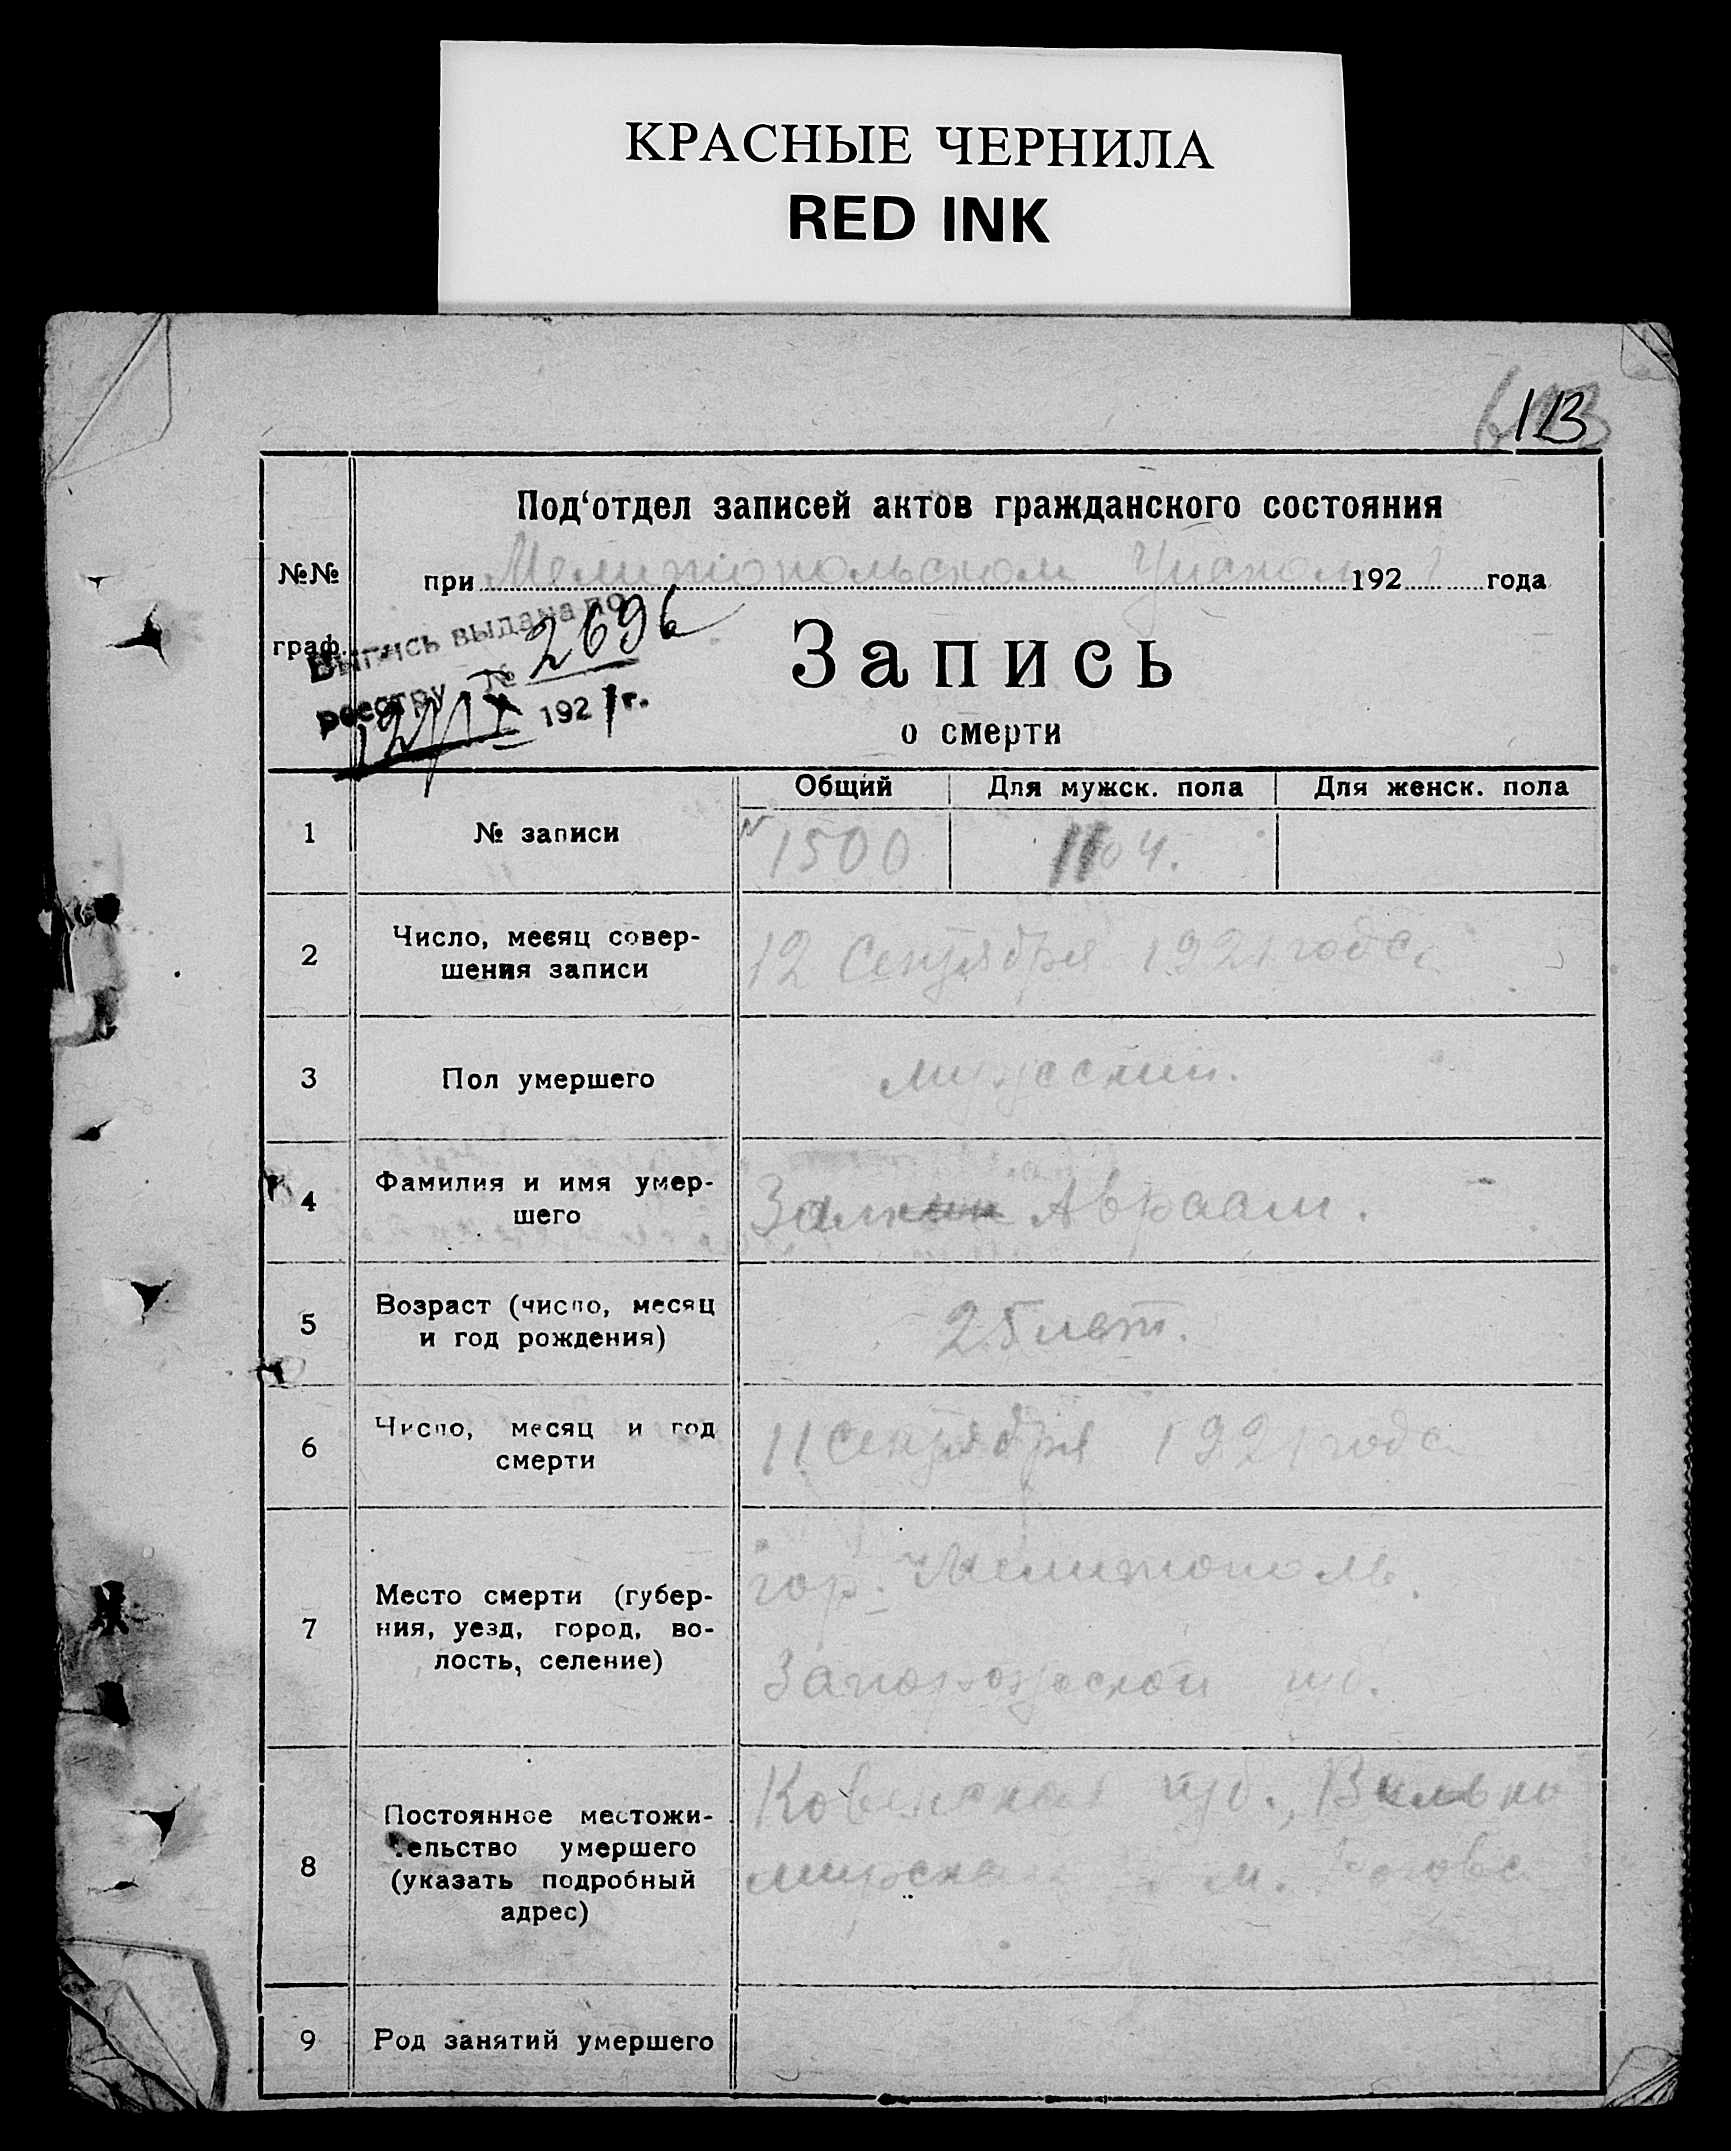 КРАСНЫЕ ЧЕРНИЛА
RED INK
113
Под‘отдел записей актов гражданского состояния
№№
граф.
при Мелитопольском 192 года
Выпись выдана по
реестру № 2696
192 1 г.
Запись
о смерти
Общий Для мужск. пола Для женск. пола
1 № записи № 1500 1104.
2 Число, месяц совер-
шения записи
12 Сентября 1921 года
3 Пол умершего мужской.
4 Фамилия и имя умер-
шего
Авраам.
5 Возраст (число, месяц
и год рождения)
25 лет.
6 Число, месяц и год
смерти
11 Сентября 1921 года
7 Место смерти (губер-
ния, уезд, город, во-
лость, селение)
гор. Мелитополь.
Запорожской губ.
8 Постоянное местожи-
тельство умершего
(указать подробный
адрес)
Ковенская губ., Вилько
мирск м.
9 Род занятий умершего